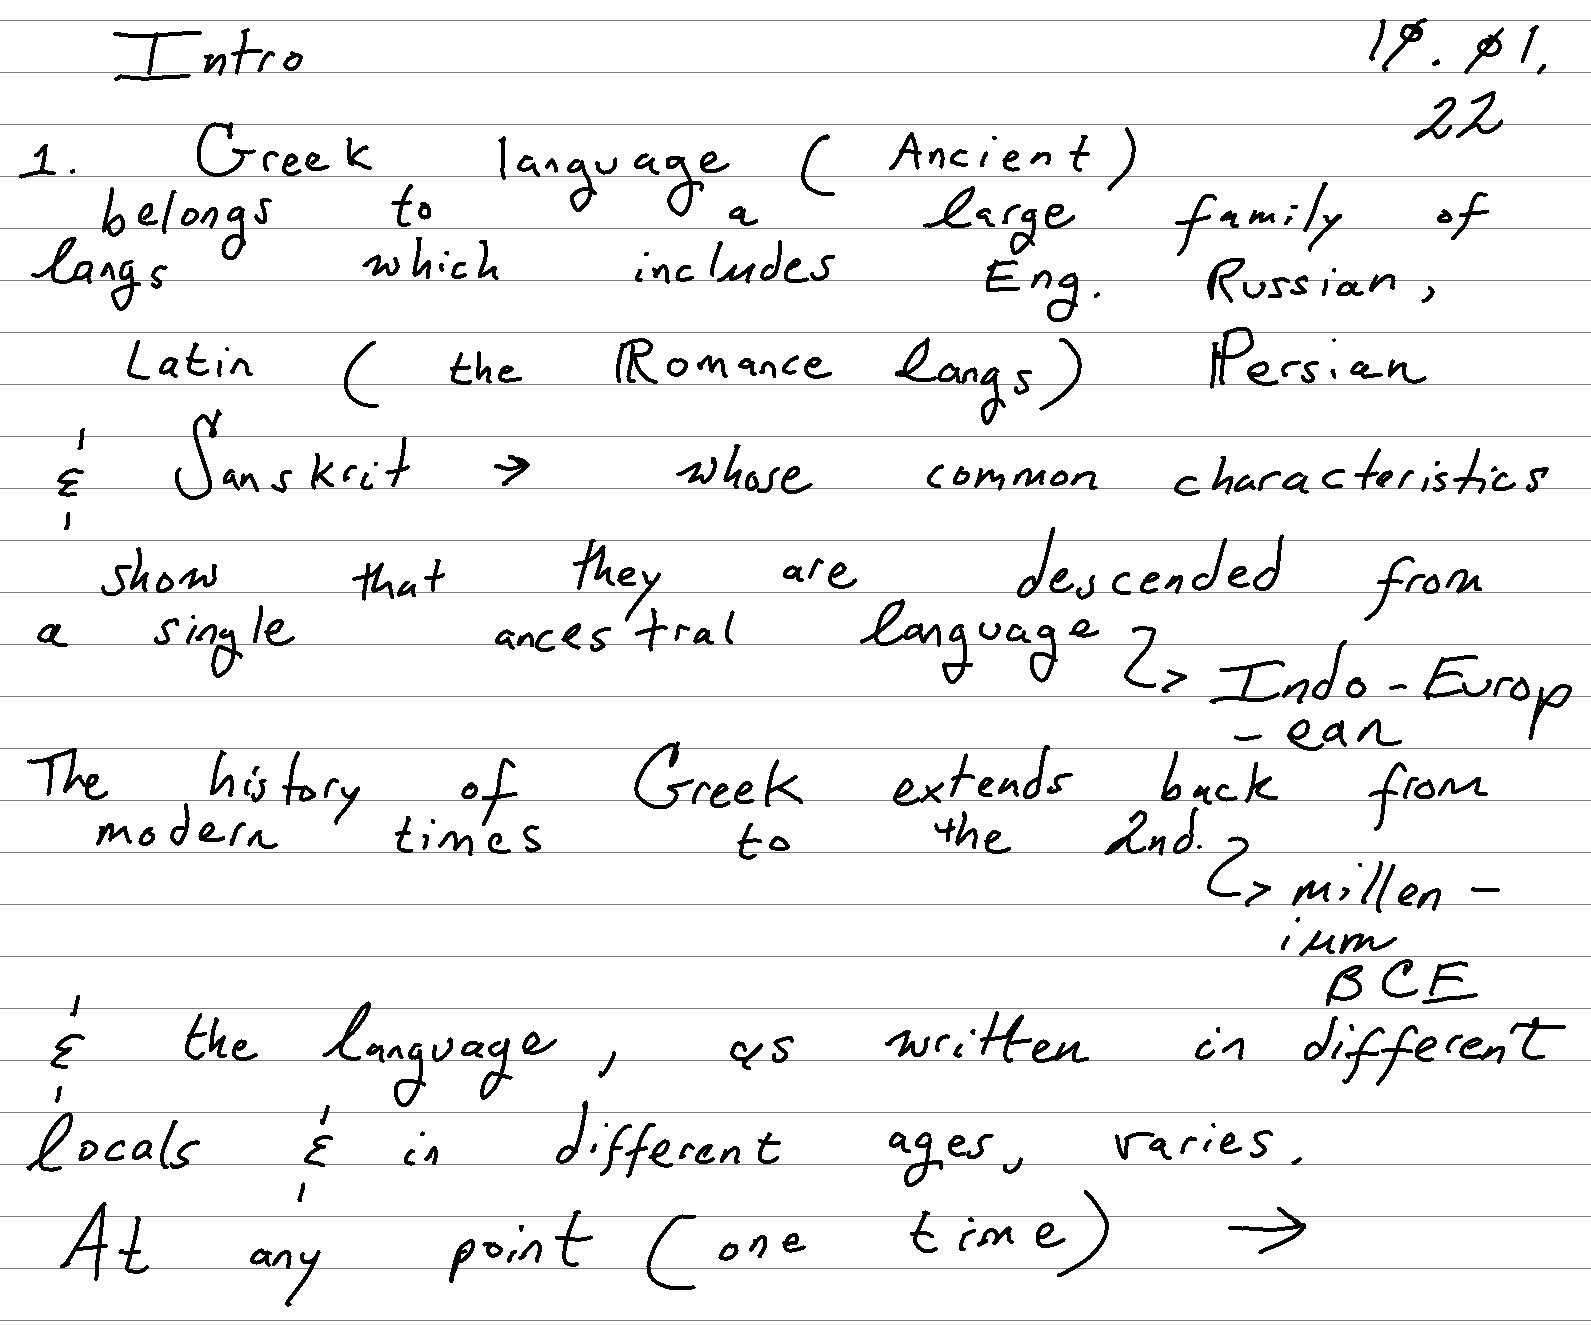 Intro 19.01.
22
1. Greek language (Ancient)
belongs to a large family of
langs which includes Eng. Russian,
Latin (the Romance langs) Persian
& Sanskrit → whose common characteristics
show that they are descended from
a single ancestral language
↳ Indo-Europ
-ean
The history of Greek extends back from
modern times to the 2nd.
↳ millen-
ium
BCE
& the language, as written in different
locals & in different ages, varies.
At any point (one time) →